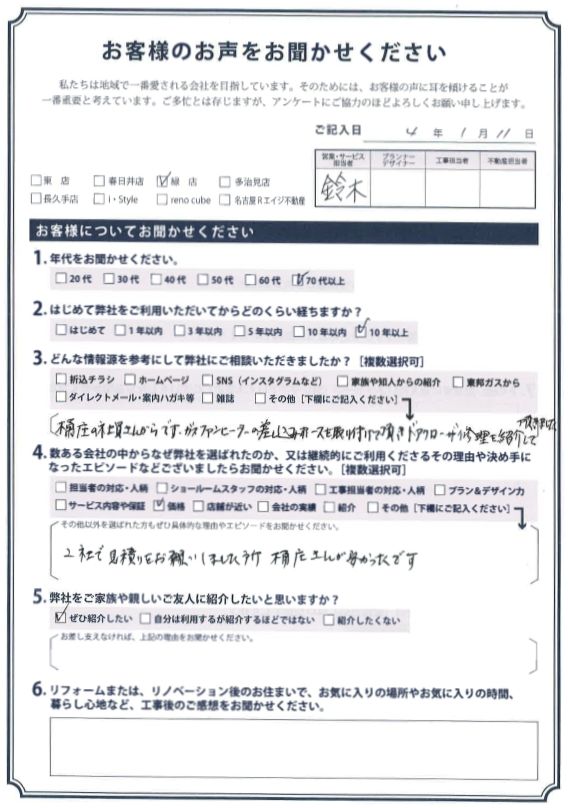 お客様のお声をお聞かせください
私たちは地域で一番愛される会社を目指しています。そのためには、お客様の声に耳を傾けることが
一番重要と考えています。ご多忙とは存じますが、アンケートにご協力のほどよろしくお願い申し上げます。
ご記入日 4 年 1 月 11 日
営業・サービス担当者 プランナーデザイナー 工事担当者 不動産担当者
鈴木
□東 店 □春日井店 ☑緑 店 □多治見店
□長久手店 □i・Style □reno cube □名古屋Rエイジ不動産
お客様についてお聞かせください
1. 年代をお聞かせください。
□20代 □30代 □40代 □50代 □60代 ☑70代以上
2. はじめて弊社をご利用いただいてからどのくらい経ちますか？
□はじめて □1年以内 □3年以内 □5年以内 □10年以内 ☑10年以上
3. どんな情報源を参考にして弊社にご相談いただきましたか？［複数選択可］
□折込チラシ □ホームページ □SNS（インスタグラムなど） □家族や知人からの紹介 □東邦ガスから
□ダイレクトメール・案内ハガキ等 □雑誌 □その他［下欄にご記入ください］
桶庄の社員さんからです。ガスファンヒーターの差し込みホースを取り付けて頂きドアクローザー修理を紹介して頂きました
4. 数ある会社の中からなぜ弊社を選ばれたのか、又は継続的にご利用くださるその理由や決め手に
なったエピソードなどございましたらお聞かせください。［複数選択可］
□担当者の対応・人柄 □ショールームスタッフの対応・人柄 □工事担当者の対応・人柄 □プラン&デザイン力
□サービス内容や保証 ☑価格 □店舗が近い □会社の実績 □紹介 □その他［下欄にご記入ください］
その他以外を選ばれた方もぜひ具体的な理由やエピソードをお聞かせください。
2社で見積りをお願いしました所 桶庄さんが安かったです
5. 弊社をご家族や親しいご友人に紹介したいと思いますか？
☑ぜひ紹介したい □自分は利用するが紹介するほどではない □紹介したくない
お差し支えなければ、上記の理由をお聞かせください。
6. リフォームまたは、リノベーション後のお住まいで、お気に入りの場所やお気に入りの時間、
暮らし心地など、工事後のご感想をお聞かせください。